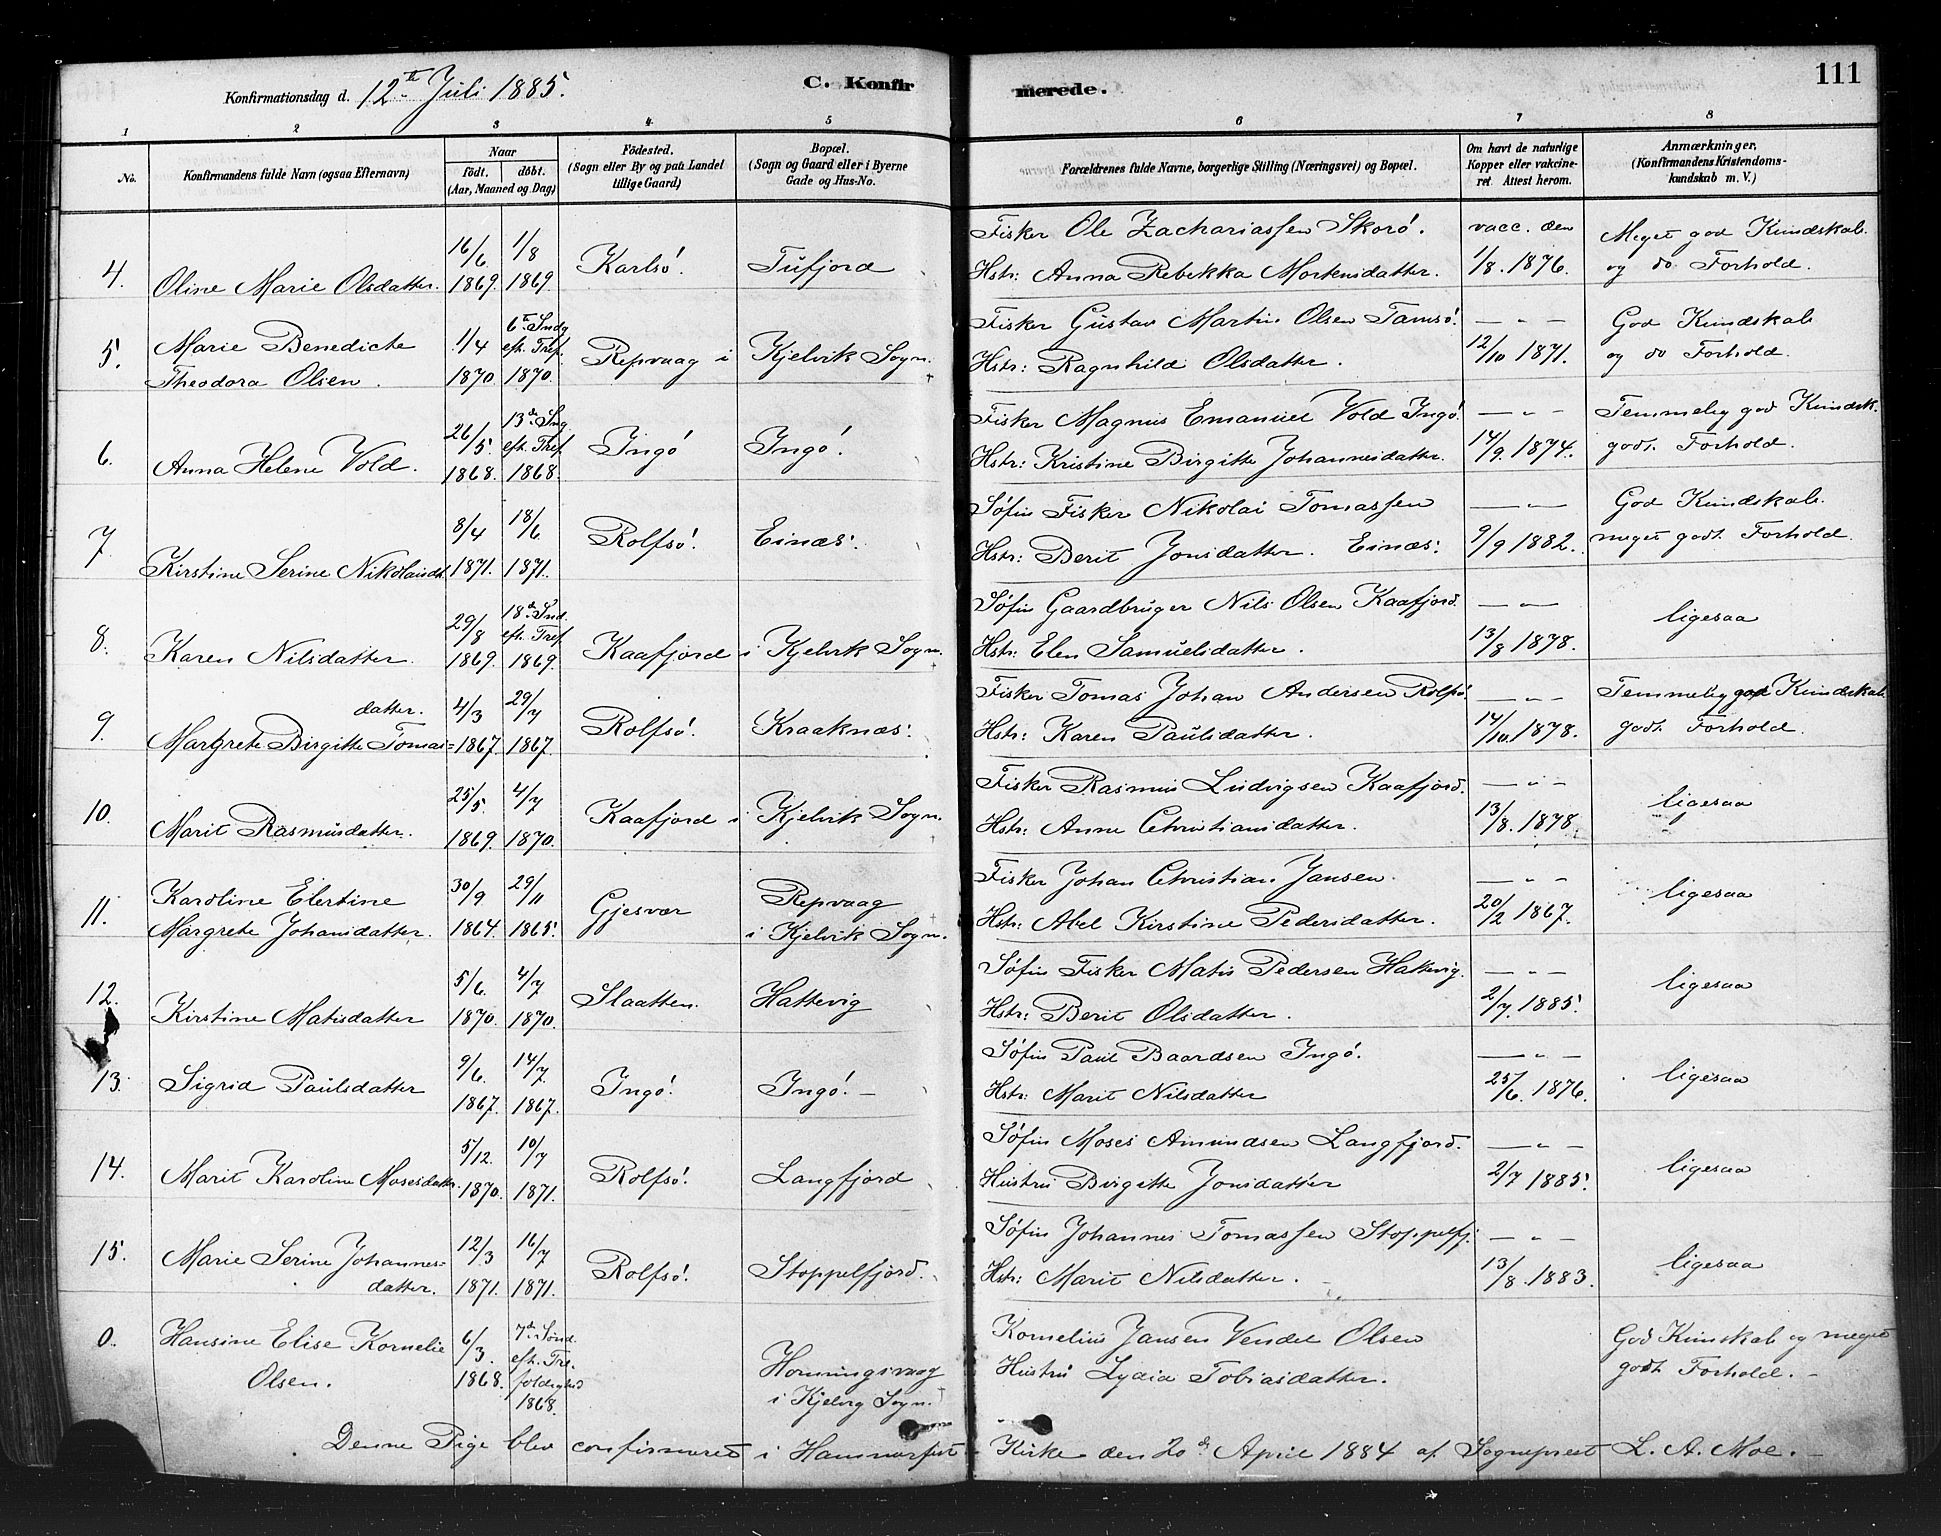 Konfirmationsdag d. 12te Juli 1885. C. Konfirmerede. 111
1 2 3 4. 5 6 7 8
No. Konfirmandens fulde Navn (ogsaa Efternavn) Naar født. døbt. (Aar, Maaned og Dag) Födested. (Sogn eller By og paa Landet tillige Gaard) Bopæl. (Sogn og Gaard eller i Byerne Gade og Hus-No. Forældrenes fulde Navne, borgerlige Stilling (Næringsvei) og Bopæl. Om havt de naturlige Kopper eller vakcineret. Attest herom. Anmærkninger, (Konfirmandens Kristendomskundskab m. V.)
4. Oline Marie Olsdatter. 16/6 1869. 1/8 1869. Karlsö. Tufjord Fisker Ole Zachariassen Skorö. Hstr: Anna Rebekka Mortensdatter. vacc. den 1/8. 1876. Meget god Kundskab. og do Forhold.
5. Marie Benedicte Theodora Olsen. 1/4 1870 6te Sndg eft. Tref. 1870. Repvaag i Kjelvik Sogn. Fisker Gustav Martin Olsen Tamsö. Hstr: Ragnhild Olsdatter. — " — 12/10 1871. God Kundskab og do Forhold.
6. Anna Helene Vold. 26/5. 1868. 13de Sng eft. Tref 1868. Ingö Ingö. Fisker Magnus Emanuel Vold Ingö. Hstr: Kristine Birgitte Johannesdatter. — " — 14/9. 1874. Temmelig god Kundsk. godt. Forhold.
7. Kirstine Serine Nikolaisdt. 8/4 1871. 18/6 1871. Rolfsö. Einæs. Søfin Fisker Nikolai Tomassen Hstr: Berit Jonsdatter. Einæs. — " — 9/9 1882. God Kundskab. meget godt. Forhold.
8. Karen Nilsdatter. 29/8 1869. 18de Snd. eft. Tref 1869. Kaafjord i Kjelvik Sogn. Søfin Gaardbruger Nils Olsen Kaafjord. Hstr: Elen Samuelsdatter. — " — 13/8 1878. ligesaa
9. Margrete Birgitte Tomas= datter. 4/3 1867. 29/7 1867. Rolfsö. Kraaknæs. Fisker Tomas Johan Andersen Rolfsö. Hstr: Karen Paulsdatter. — " — 14/10. 1878. Temmelig god Kundskab godt. Forhold.
10. Marit Rasmusdatter. 25/5. 1869. 4/7 1870. Kaafjord i Kjelvik Sogn. Fisker Rasmus Ludvigsen Kaafjord. Hstr: Anne Christiansdatter. — " — 13/8. 1878. ligesaa
11. Karoline Elertine Margrete Johansdatter. 30/9 1864. 29/11 1865. Gjesvær Repvaag i Kjelvik Sogn. Fisker Johan Christian Jansen. Hstr: Abel Kirstine Pedersdatter. — " — 20/2 1867. ligesaa
12. Kirstine Matisdatter 5/6. 1870. 4/7 1870. Slaatten. Hattevig Søfin Fisker Matis Pedersen Hattevig. Hstr: Berit Olsdatter. — " — 2/7. 1885. ligesaa
13. Sigrid Paulsdatter 9/6. 1867. 14/7. 1867. Ingö. Ingö. — Søfin Paul Baardsen Ingö. Hstr: Marit Nilsdatter — " — 25/6. 1876. ligesaa
14. Marit Karoline Mosesdatter. 5/12. 1870. 10/7 1871. Rolfsö. Langfjord Søfin Moses Amundsen Langfjord. Hustru Birgitte Jonsdatter — " — 2/7 1885. ligesaa
15. Marie Serine Johannes= datter. 12/3 1871. 16/7 1871. Rolfsö. Stoppelfjord. Søfin Johannes Tomassen Stoppelfj. Hstr: Marit Nilsdatter. — " — 13/8. 1883. ligesaa
0. Hansine Elise Kornelie Olsen. 6/3. 1868. 7de Sönd. eft. Trefoldighed 1868. Honningsvaag i Kjelvig Sogn. Kornelius Jansen Vendel Olsen Hustru Lydia Tobiasdatter. God Kunskab og meget godt. Forhold. —
Denne Pige blev confirmeret i Hammerfest Kirke den 20de April 1884 af Sogneprest L. A. Moe. —